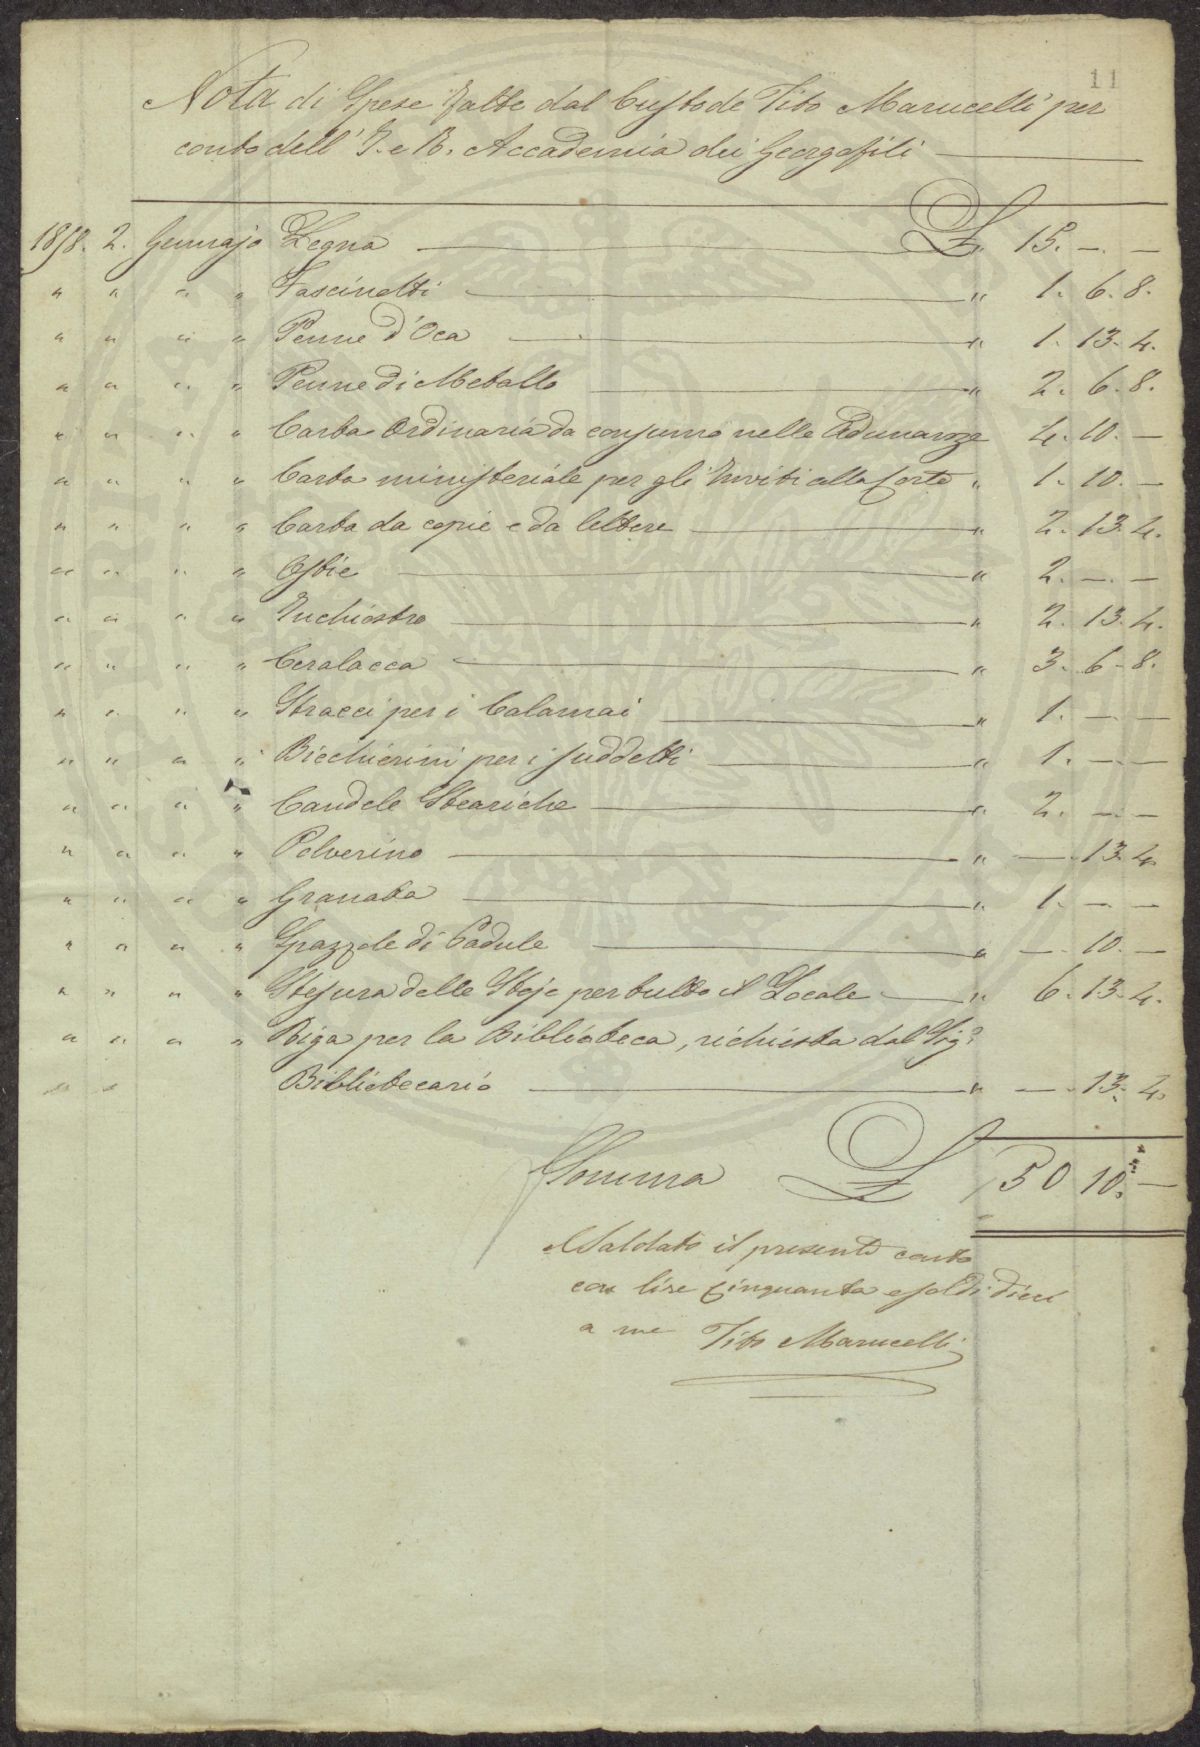 11
Nota di Spese Fatte dal Custode Tito Marucelli per
conto dell' I. e R. Accademia dei Georgofili
1858. 2. Gennajo Legna £. 15. — —
" " " " Fascinotti " 1. 6. 8.
" " " " Penne d'Oca " 1. 13. 4.
" " " " Penne di Metallo " 2. 6. 8.
" " " " Carta Ordinaria da consumo nelle Adunanze 4. 10. —
" " " " Carta ministeriale per gli Inviti alla Corte " 1. 10. —
" " " " Carta da copie e da lettere " 2. 13. 4.
" " " " Ostie " 2. — —
" " " " Inchiostro " 2. 13. 4.
" " " " Ceralacca " 3. 6. 8.
" " " " Stracci per i Calamai " 1. — —
" " " " Bicchierini per i suddetti " 1. — —
" " " " Candele Steariche " 2. — —
" " " " Polverino " — 13. 4.
" " " " Granata " 1. — —
" " " " Spazzole di Padule " — 10. —
" " " " Stesura delle Stoje per tutto il Locale " 6. 13. 4.
" " " " Riga per la Biblioteca, richiesta dal Sig.
" " Bibliotecario " — 13. 4.
Somma £ 50 10. —
Saldato il presente conto
con lire cinquanta e soldi dieci
a me Tito Marucelli